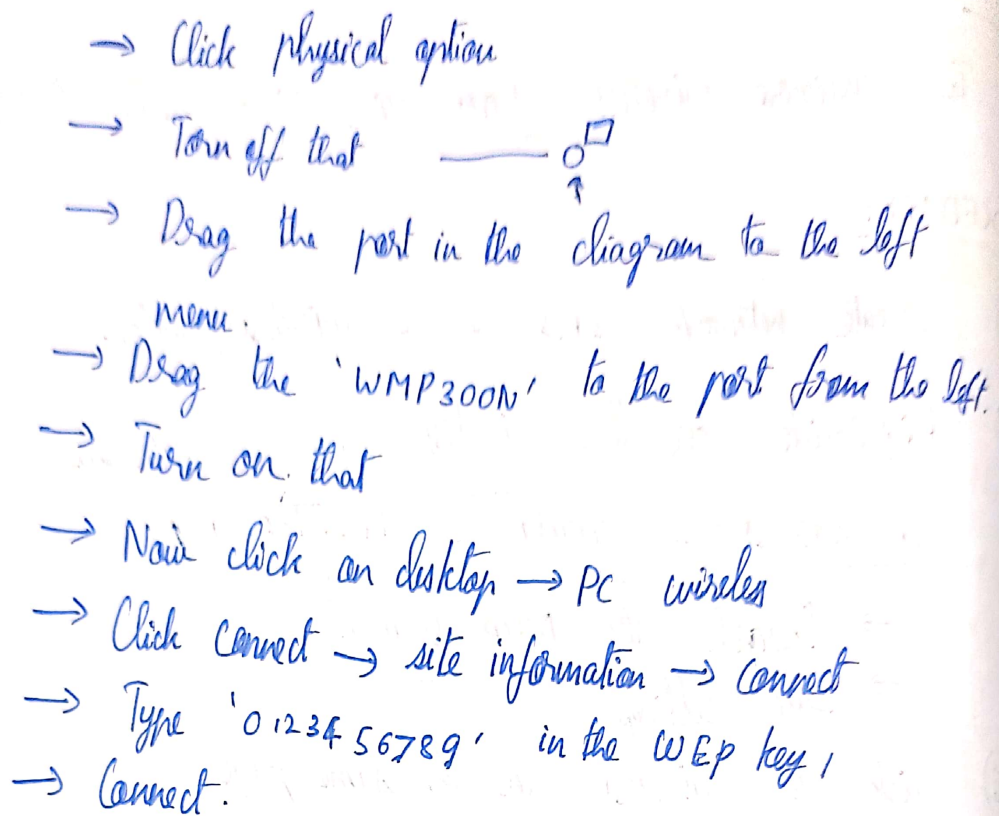 → Click physical option
→ Turn off that
→ Drag the port in the diagram to the left
menu.
→ Drag the 'WMP300N' to the port from the left.
→ Turn on that
→ Now click on desktop → PC wireless
→ Click connect → site information → connect
→ Type '0123456789' in the WEP key 1
→ Connect.